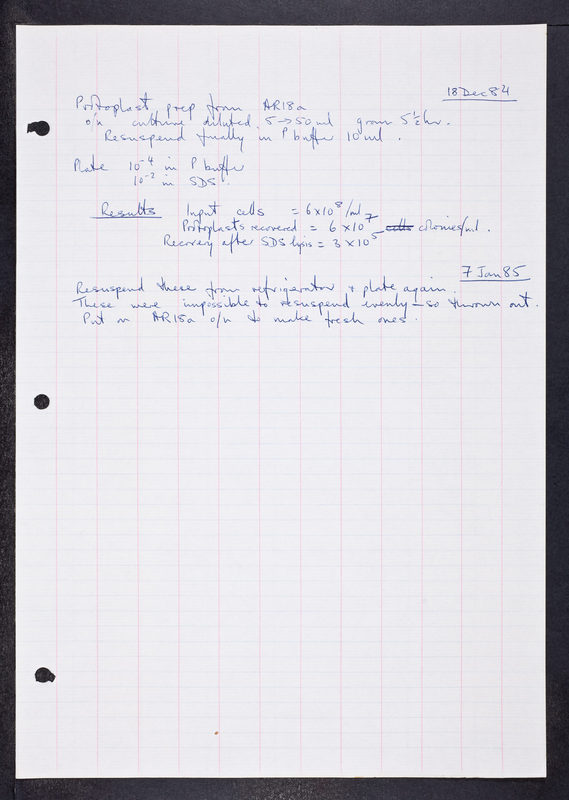 18 Dec 84
Protoplast prep from AR18a
o/n culture diluted 5→50 ml grown 5½ hr.
Resuspend finally in P buffer 10 ml.
Plate 10⁻⁴ in P buffer
10⁻² in SDS.
Results Input cells = 6×10⁸/ml
Protoplasts recovered = 6×10⁷ cells colonies/ml.
Recovery after SDS lysis = 3×10⁵
7 Jan 85
Resuspend these from refrigerator + plate again.
These were impossible to resuspend evenly – so thrown out.
Put on AR18a o/n to make fresh ones.